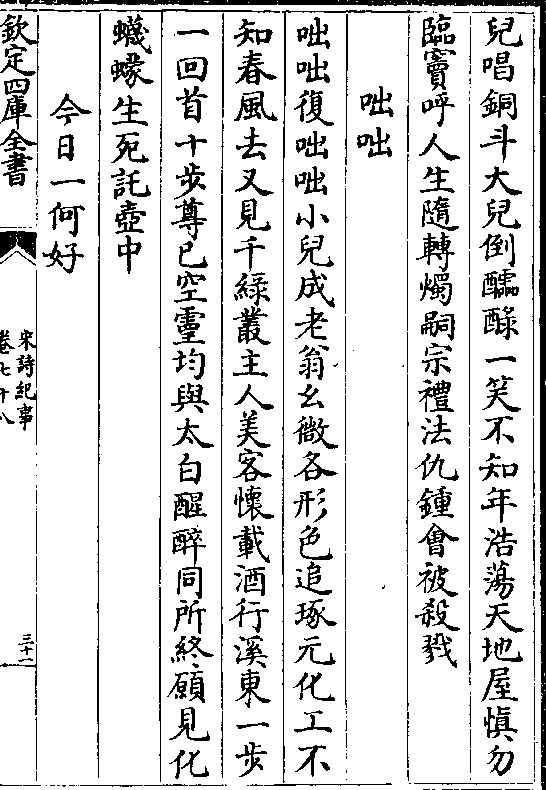 兒唱銅斗大兒倒醽醁一笑不知年浩蕩天地屋慎勿
臨竇呼人生隨轉燭嗣宗禮法仇鍾會被殺戮
咄咄
咄咄復咄咄小兒成老翁幺微各形色追琢元化工不
知春風去又見千綠叢主人美客懷載酒行溪東一步
一回首十步尊已空靈均與太白醒醉同所終願見化
蠛蠓生死託壺中
今日一何好
欽定四庫全書
宋詩紀事
卷七十八
三十一